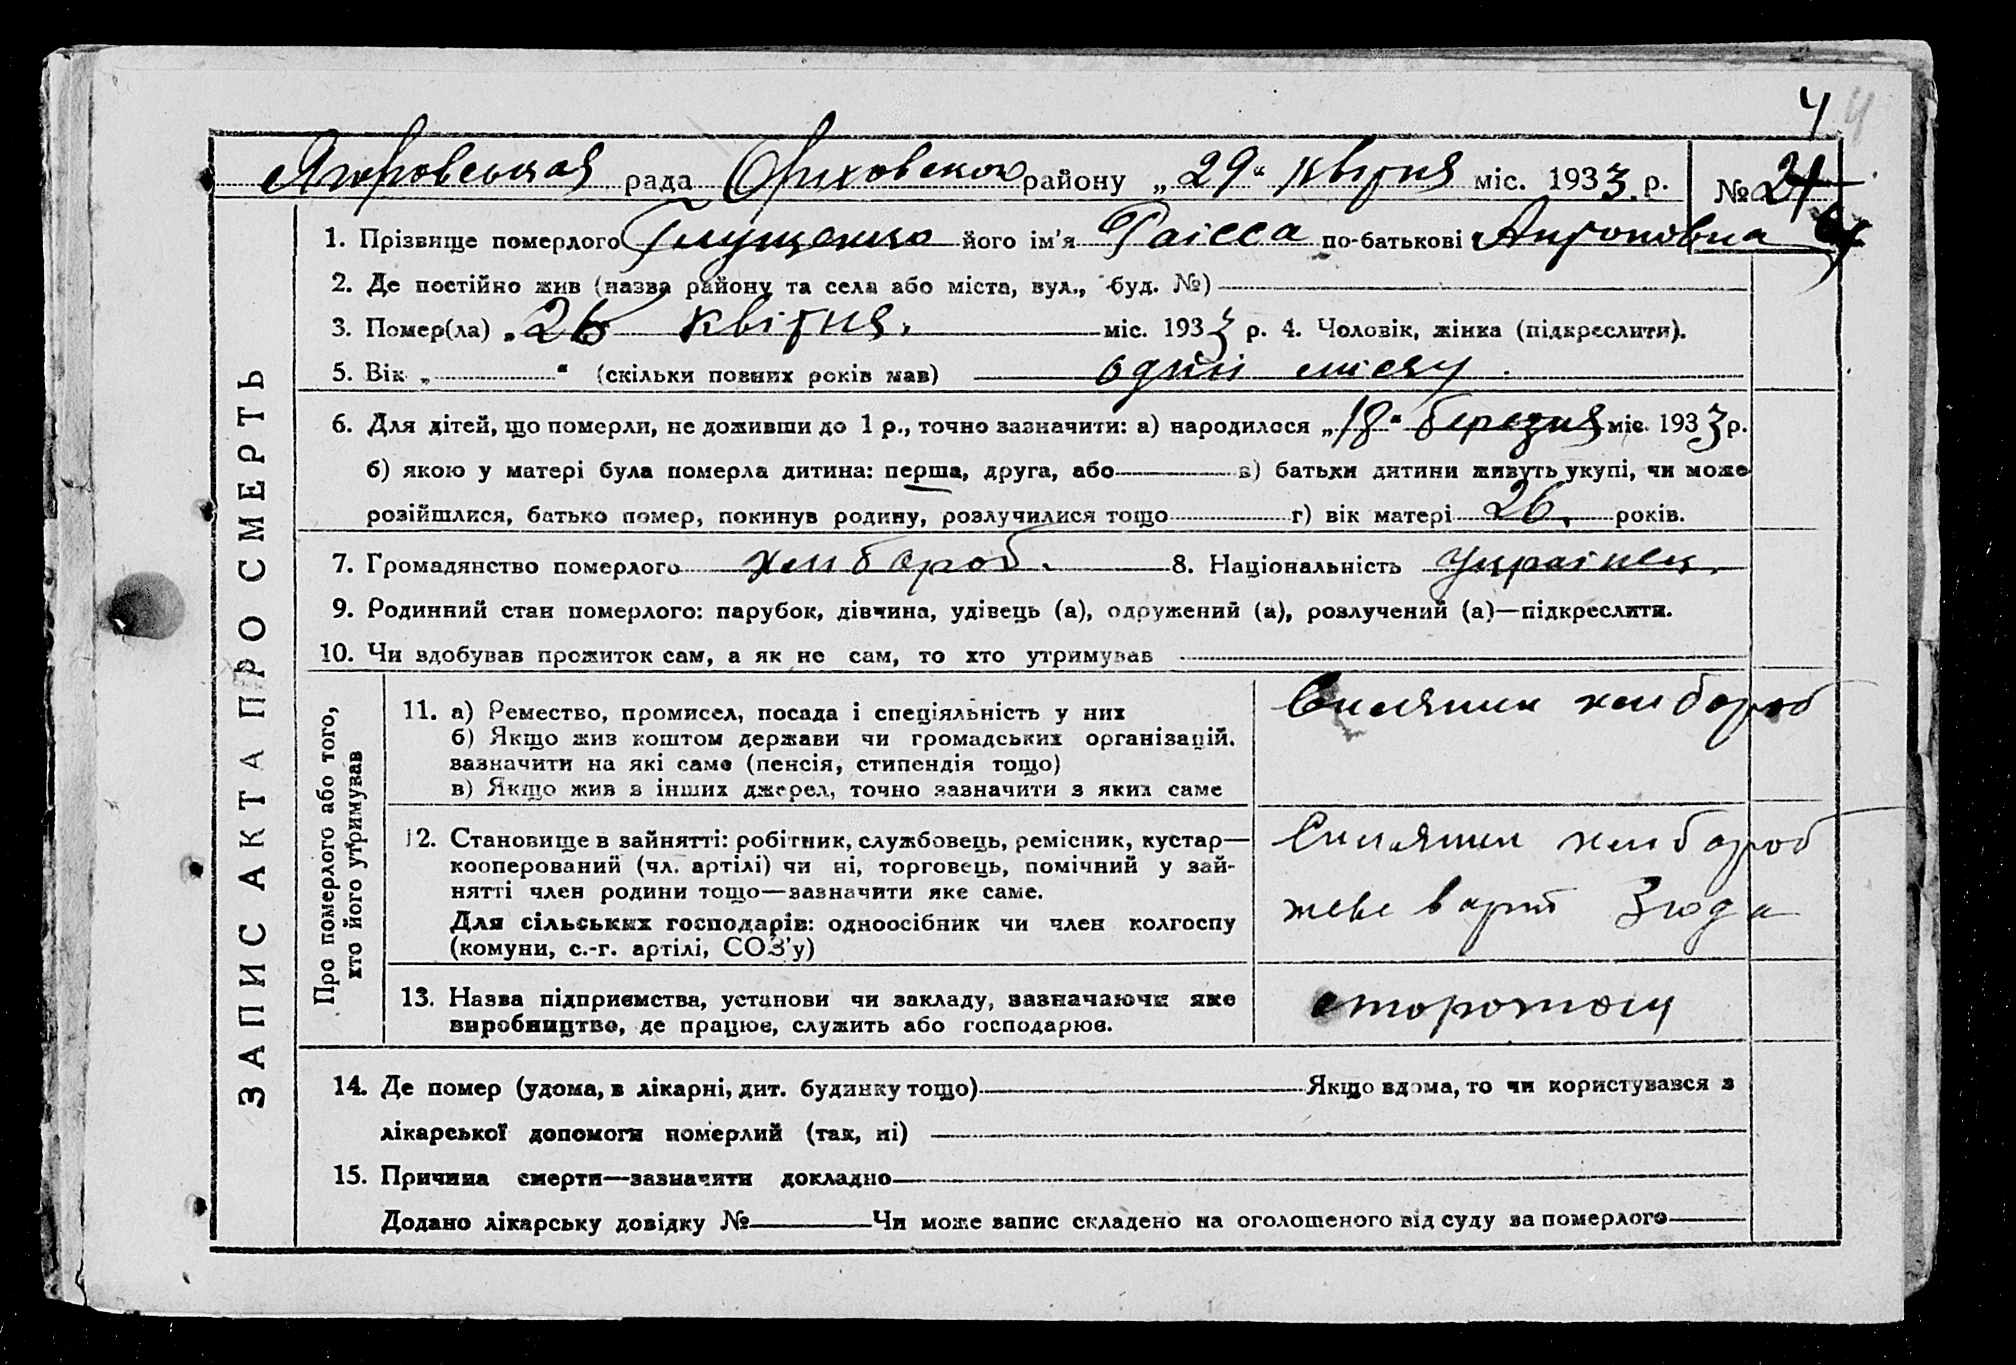 4 4
рада району „29“ квітня міс. 1933 р. № 24
1. Прізвище померлого Глущенко його ім'я Раісса по-батькові Антоновна
2. Де постійно жив (назва району та села або міста, вул., буд. №)
3. Помер(ла) „26 квітня. міс. 1933 р. 4. Чоловік, жінка (підкреслити).
5. Вік „ “ (скільки повних років мав) один місяц
6. Для дітей, що померли, не доживши до 1 р., точно зазначити: а) народилося „18“ березня міс. 1933 р.
б) якою у матері була померла дитина: перша, друга, або в) батьки дитини живуть укупі, чи може
розійшлися, батько помер, покинув родину, розлучилися тощо г) вік матері 26. років.
7. Громадянство померлого хлибороб. 8. Національність украінец.
9. Родинний стан померлого: парубок, дівчина, удівець (а), одружений (а), розлучений (а)—підкреслити.
10. Чи здобував прожиток сам, а як не сам, то хто утримував
ЗАПИС АКТА ПРО СМЕРТЬ
Про померлого або того,
хто його утримував
11. а) Ремество, промисел, посада і спеціяльність у них
б) Якщо жив коштом держави чи громадських організацій.
зазначити на які саме (пенсія, стипендія тощо)
в) Якщо жив з інших джерел, точно зазначити з яких саме
хлибороб
12. Становище в зайнятті: робітник, службовець, ремісник, кустар—
кооперований (чл. артілі) чи ні, торговець, помічний у зай-
нятті член родини тощо—зазначити яке саме.
Для сільських господарів: одноосібник чи член колгоспу
(комуни, с.-г. артілі, СОЗ'у)
хлибороб
Згода
13. Назва підприємства, установи чи закладу, зазначаючи яке
виробництво, де працює, служить або господарює.
сторожом
14. Де помер (удома, в лікарні, дит. будинку тощо) Якщо вдома, то чи користувався з
лікарської допомоги померлий (так, ні)
15. Причина смерти—зазначити докладно
Додано лікарську довідку № Чи може запис складено на оголошеного від суду за померлого